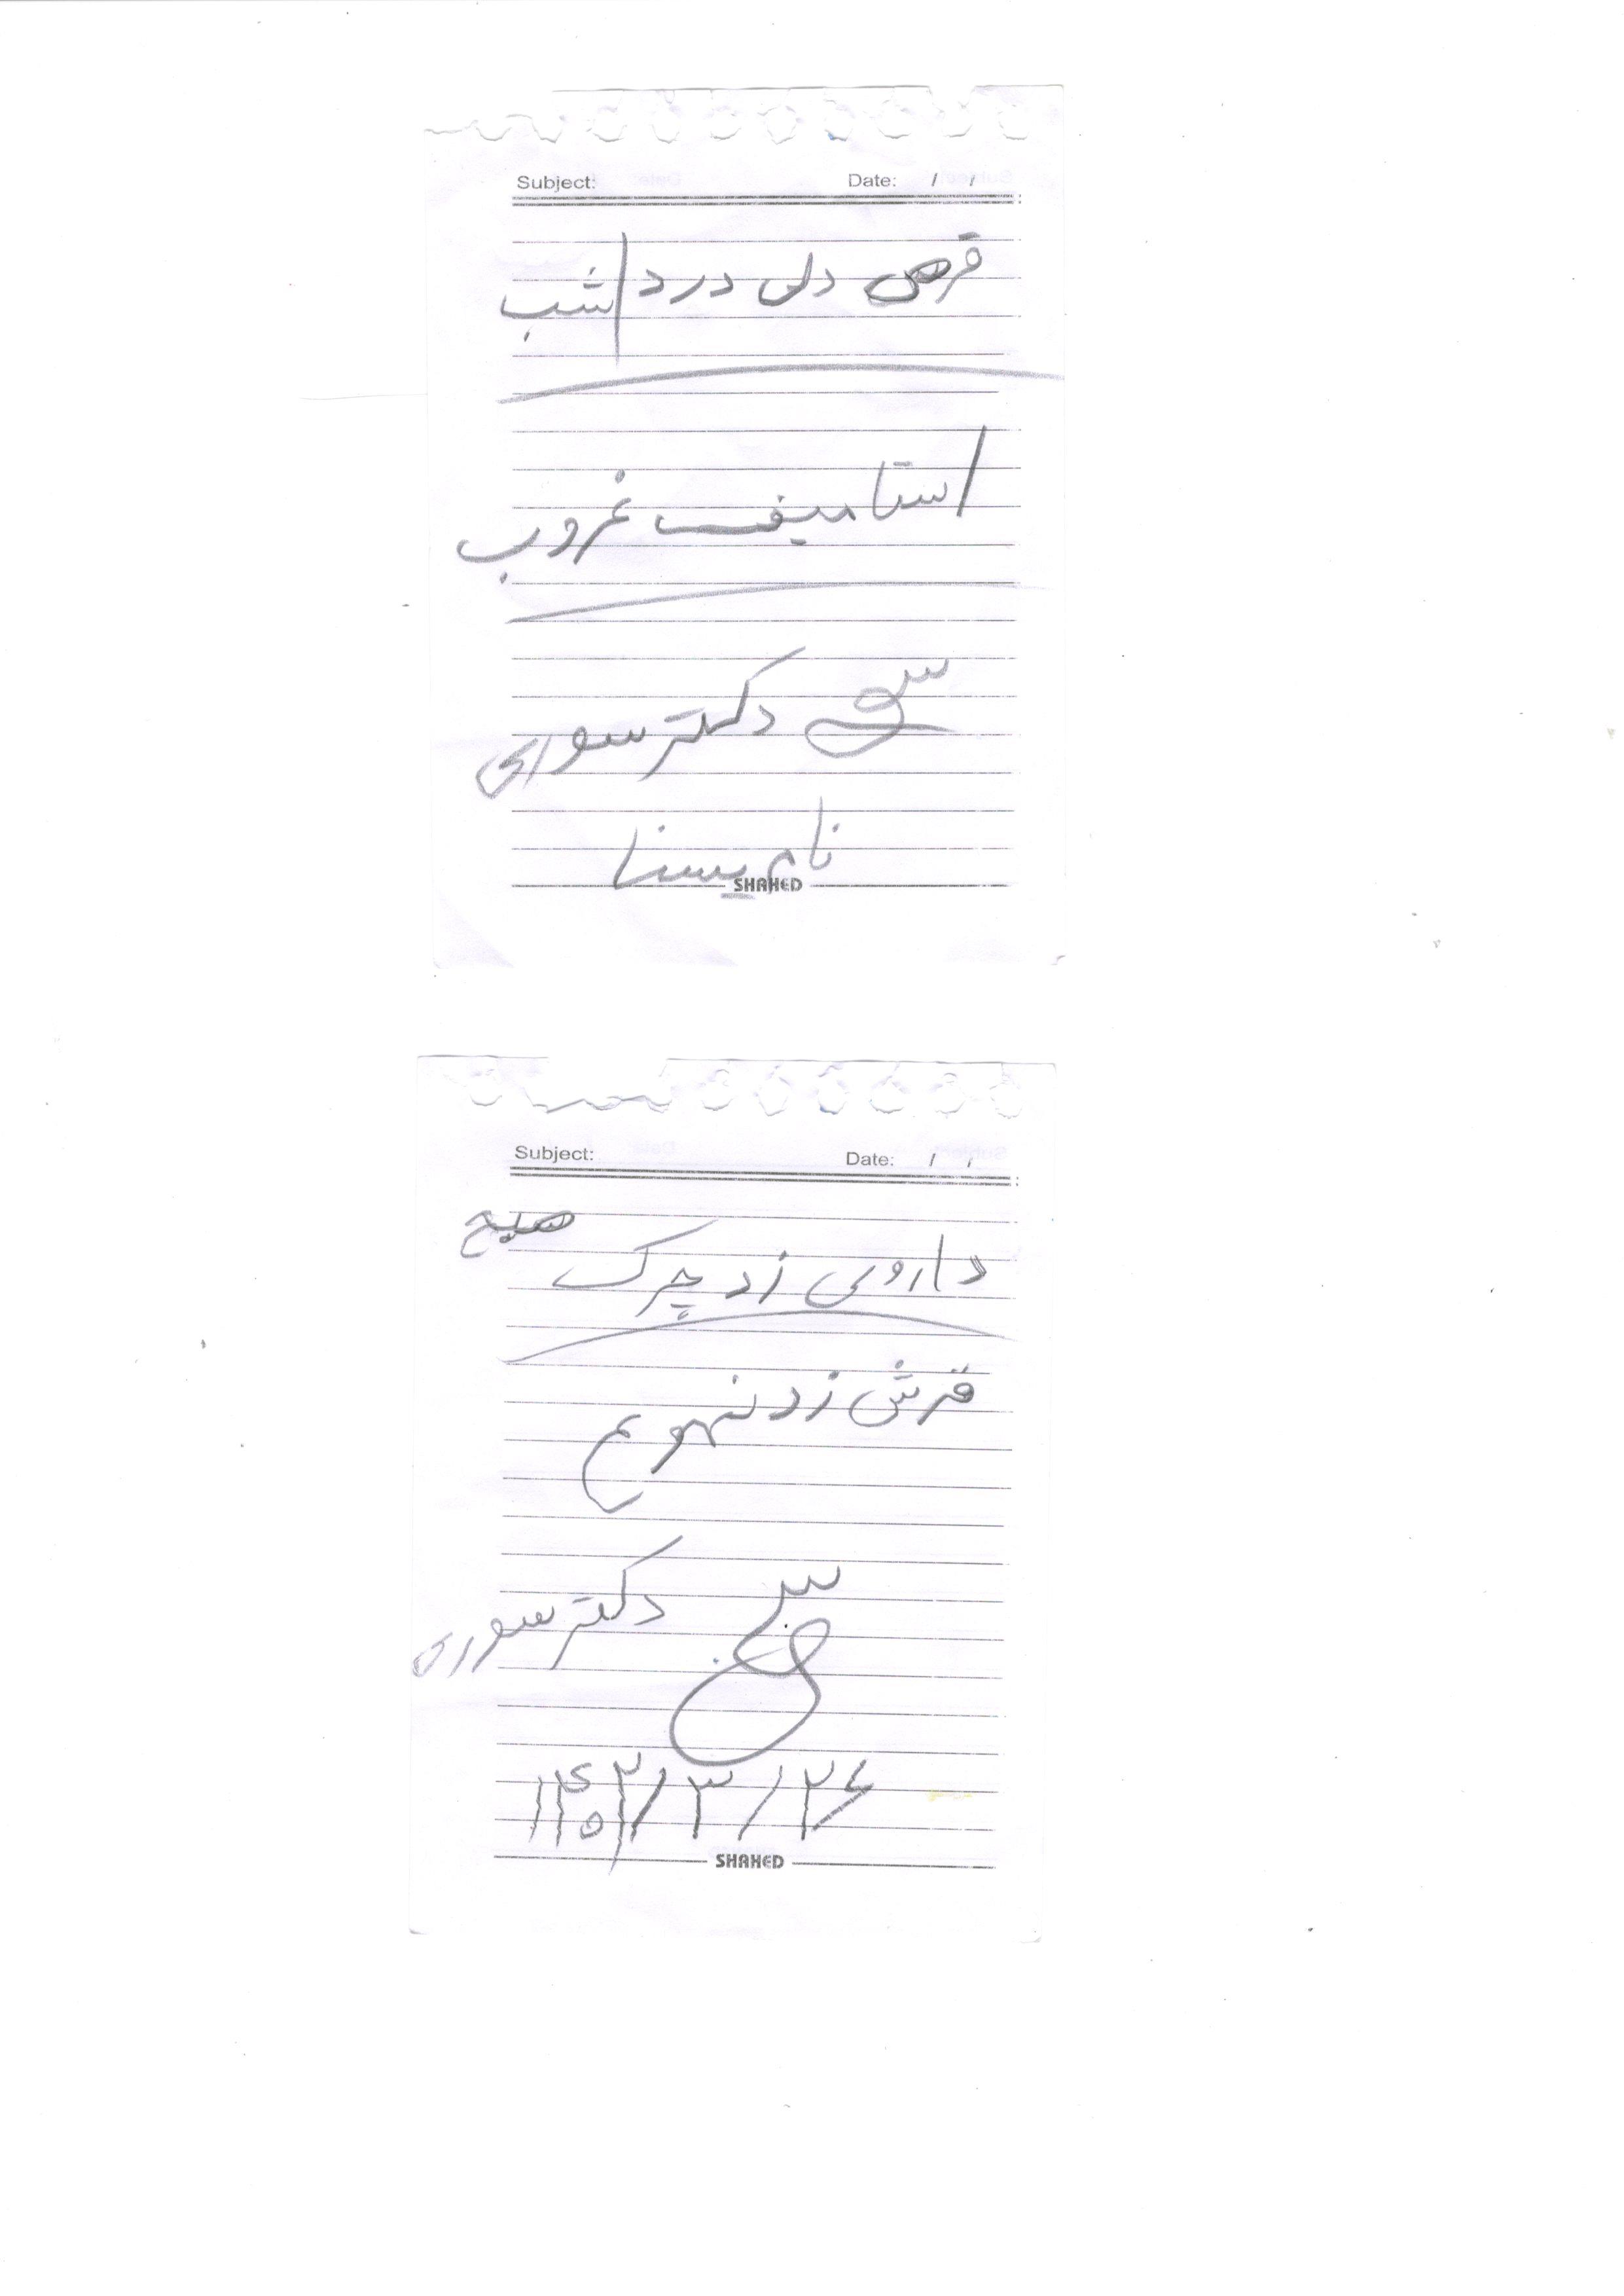 Subject: Date: / /
قرص دلی درد / شب
استامیف غروب
دکتر سوری
نام یسنا
SHAHED
Subject: Date: / /
هیچ
داروی زد چرک
قرش زد تهوع
دکتر سوری
۱۴۰۲/۳/۲۶
SHAHED